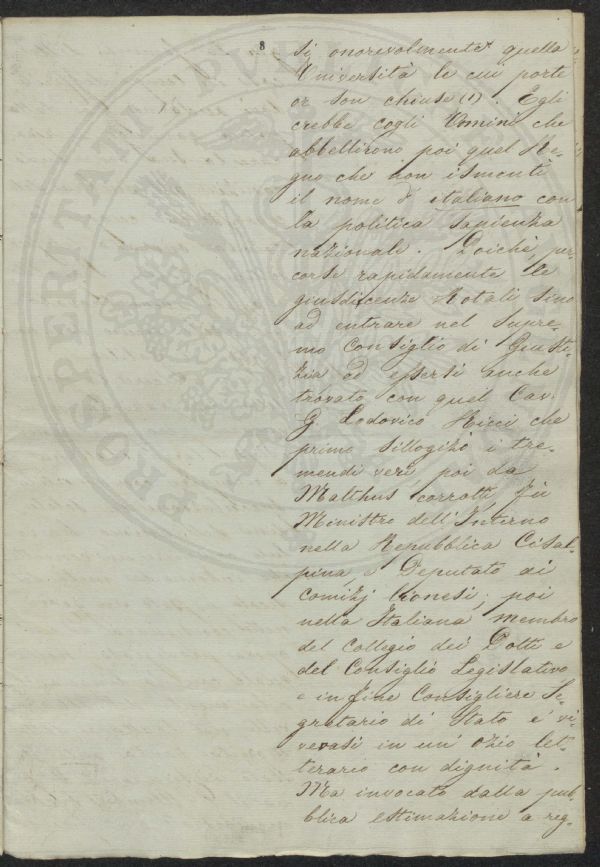 8
si onorevolmente quella
Università le cui porte
or son chiuse (1). Egli
crebbe cogli Omini che
abbellirono poi quel Re-
gno che non ismentì
il nome d' italiano con
la politica sapienza
nazionale. Poichè, per-
corse rapidamente le
giusdicenze Rotali sino
ad entrare nel Supre-
mo Consiglio di Giusti-
zia ed essersi anche
trovato con quel Cav.
G Lodovico Ricci che
primo sillogizò i tre-
mendi veri poi da
Malthus corrotti, fù
Ministro dell'Interno
nella Repubblica Cisal-
pina, e Deputato ai
comizj lionesi; poi
nella Italiana membro
del Collegio dei Dotti e
del Consiglio Legislativo
e in fine Consigliere Se-
gratario di Stato e vi-
vevasi in un' ozio let-
terario con dignità.
Ma invocato dalla pub-
blica estimazione a reg-
PROSPERITATI PVBLICAE